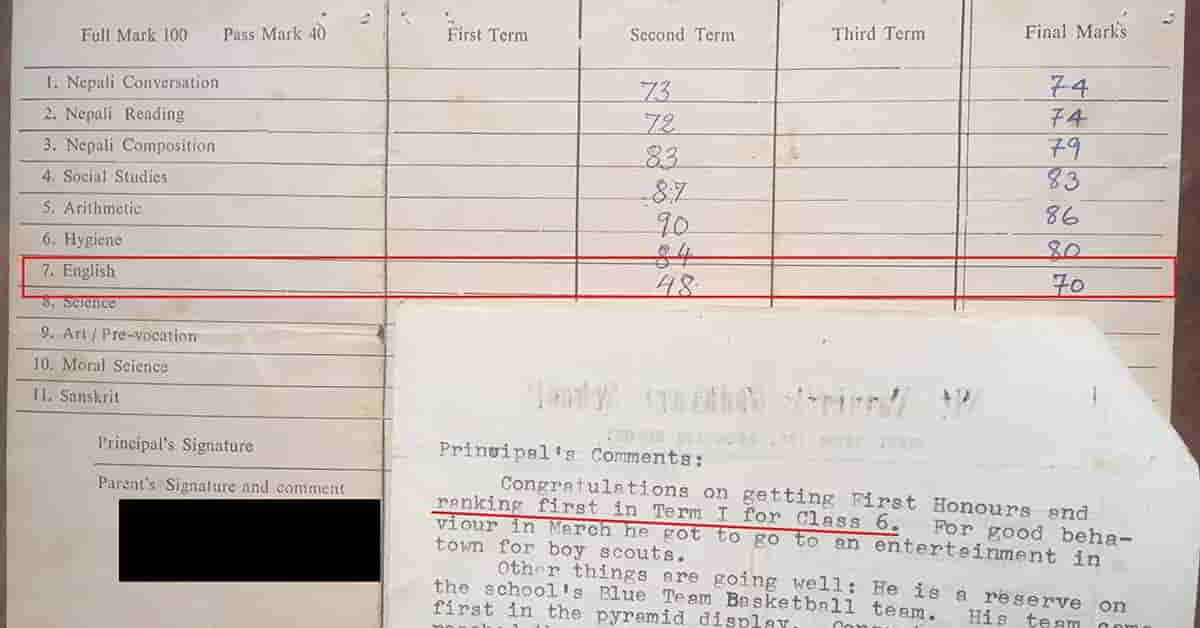 Full Mark 100 Pass Mark 40 First Term Second Term Third Term Final Marks
1. Nepali Conversation 73 74
2. Nepali Reading 72 74
3. Nepali Composition 83 79
4. Social Studies 87 83
5. Arithmetic 90 86
6. Hygiene 84 80
7. English 48 70
8. Science
9. Art / Pre-vocation
10. Moral Science
11. Sanskrit
Principal's Signature
Parent's Signature and comment
Principal's Comments:
Congratulations on getting First Honours and
ranking first in Term I for Class 6. For good beha-
viour in March he got to go to an entertainment in
town for boy scouts.
Other things are going well: He is a reserve on
the school's Blue Team Basketball team. His team came
first in the pyramid display.